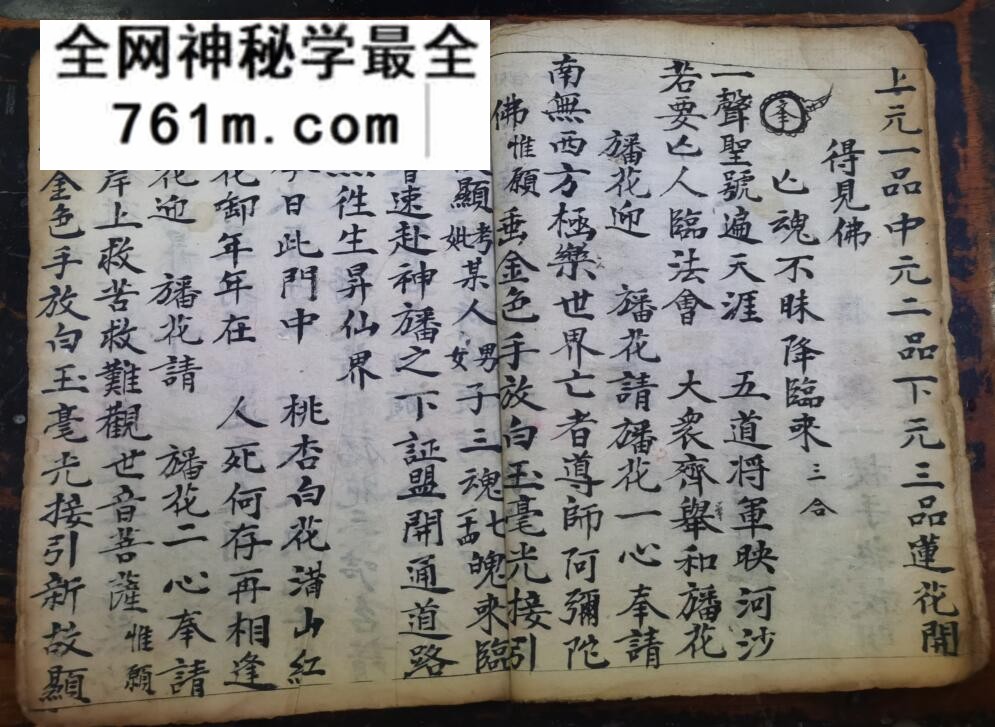 全网神秘学最全
761m.com
上元一品中元二品下元三品蓮花開
得見佛
奉 亡魂不昧降臨來 三合
一聲聖號遍天涯 五道将軍映河沙
若要亡人臨法會 大衆齊舉和旛花
旛花迎 旛花請旛花一心奉請
南無西方極樂世界亡者導師阿彌陀
佛惟願垂金色手放白玉毫光接引
顯考妣某人男女子三魂七魄來臨
速赴神旛之下証盟開通道路
徃生昇仙界
日此門中 桃杏白花滿山紅
花啣年年在 人死何存再相逢
花迎 旛花請 旛花二心奉請
岸上救苦救難觀世音菩薩惟願
金色手放白玉毫光接引新故顯